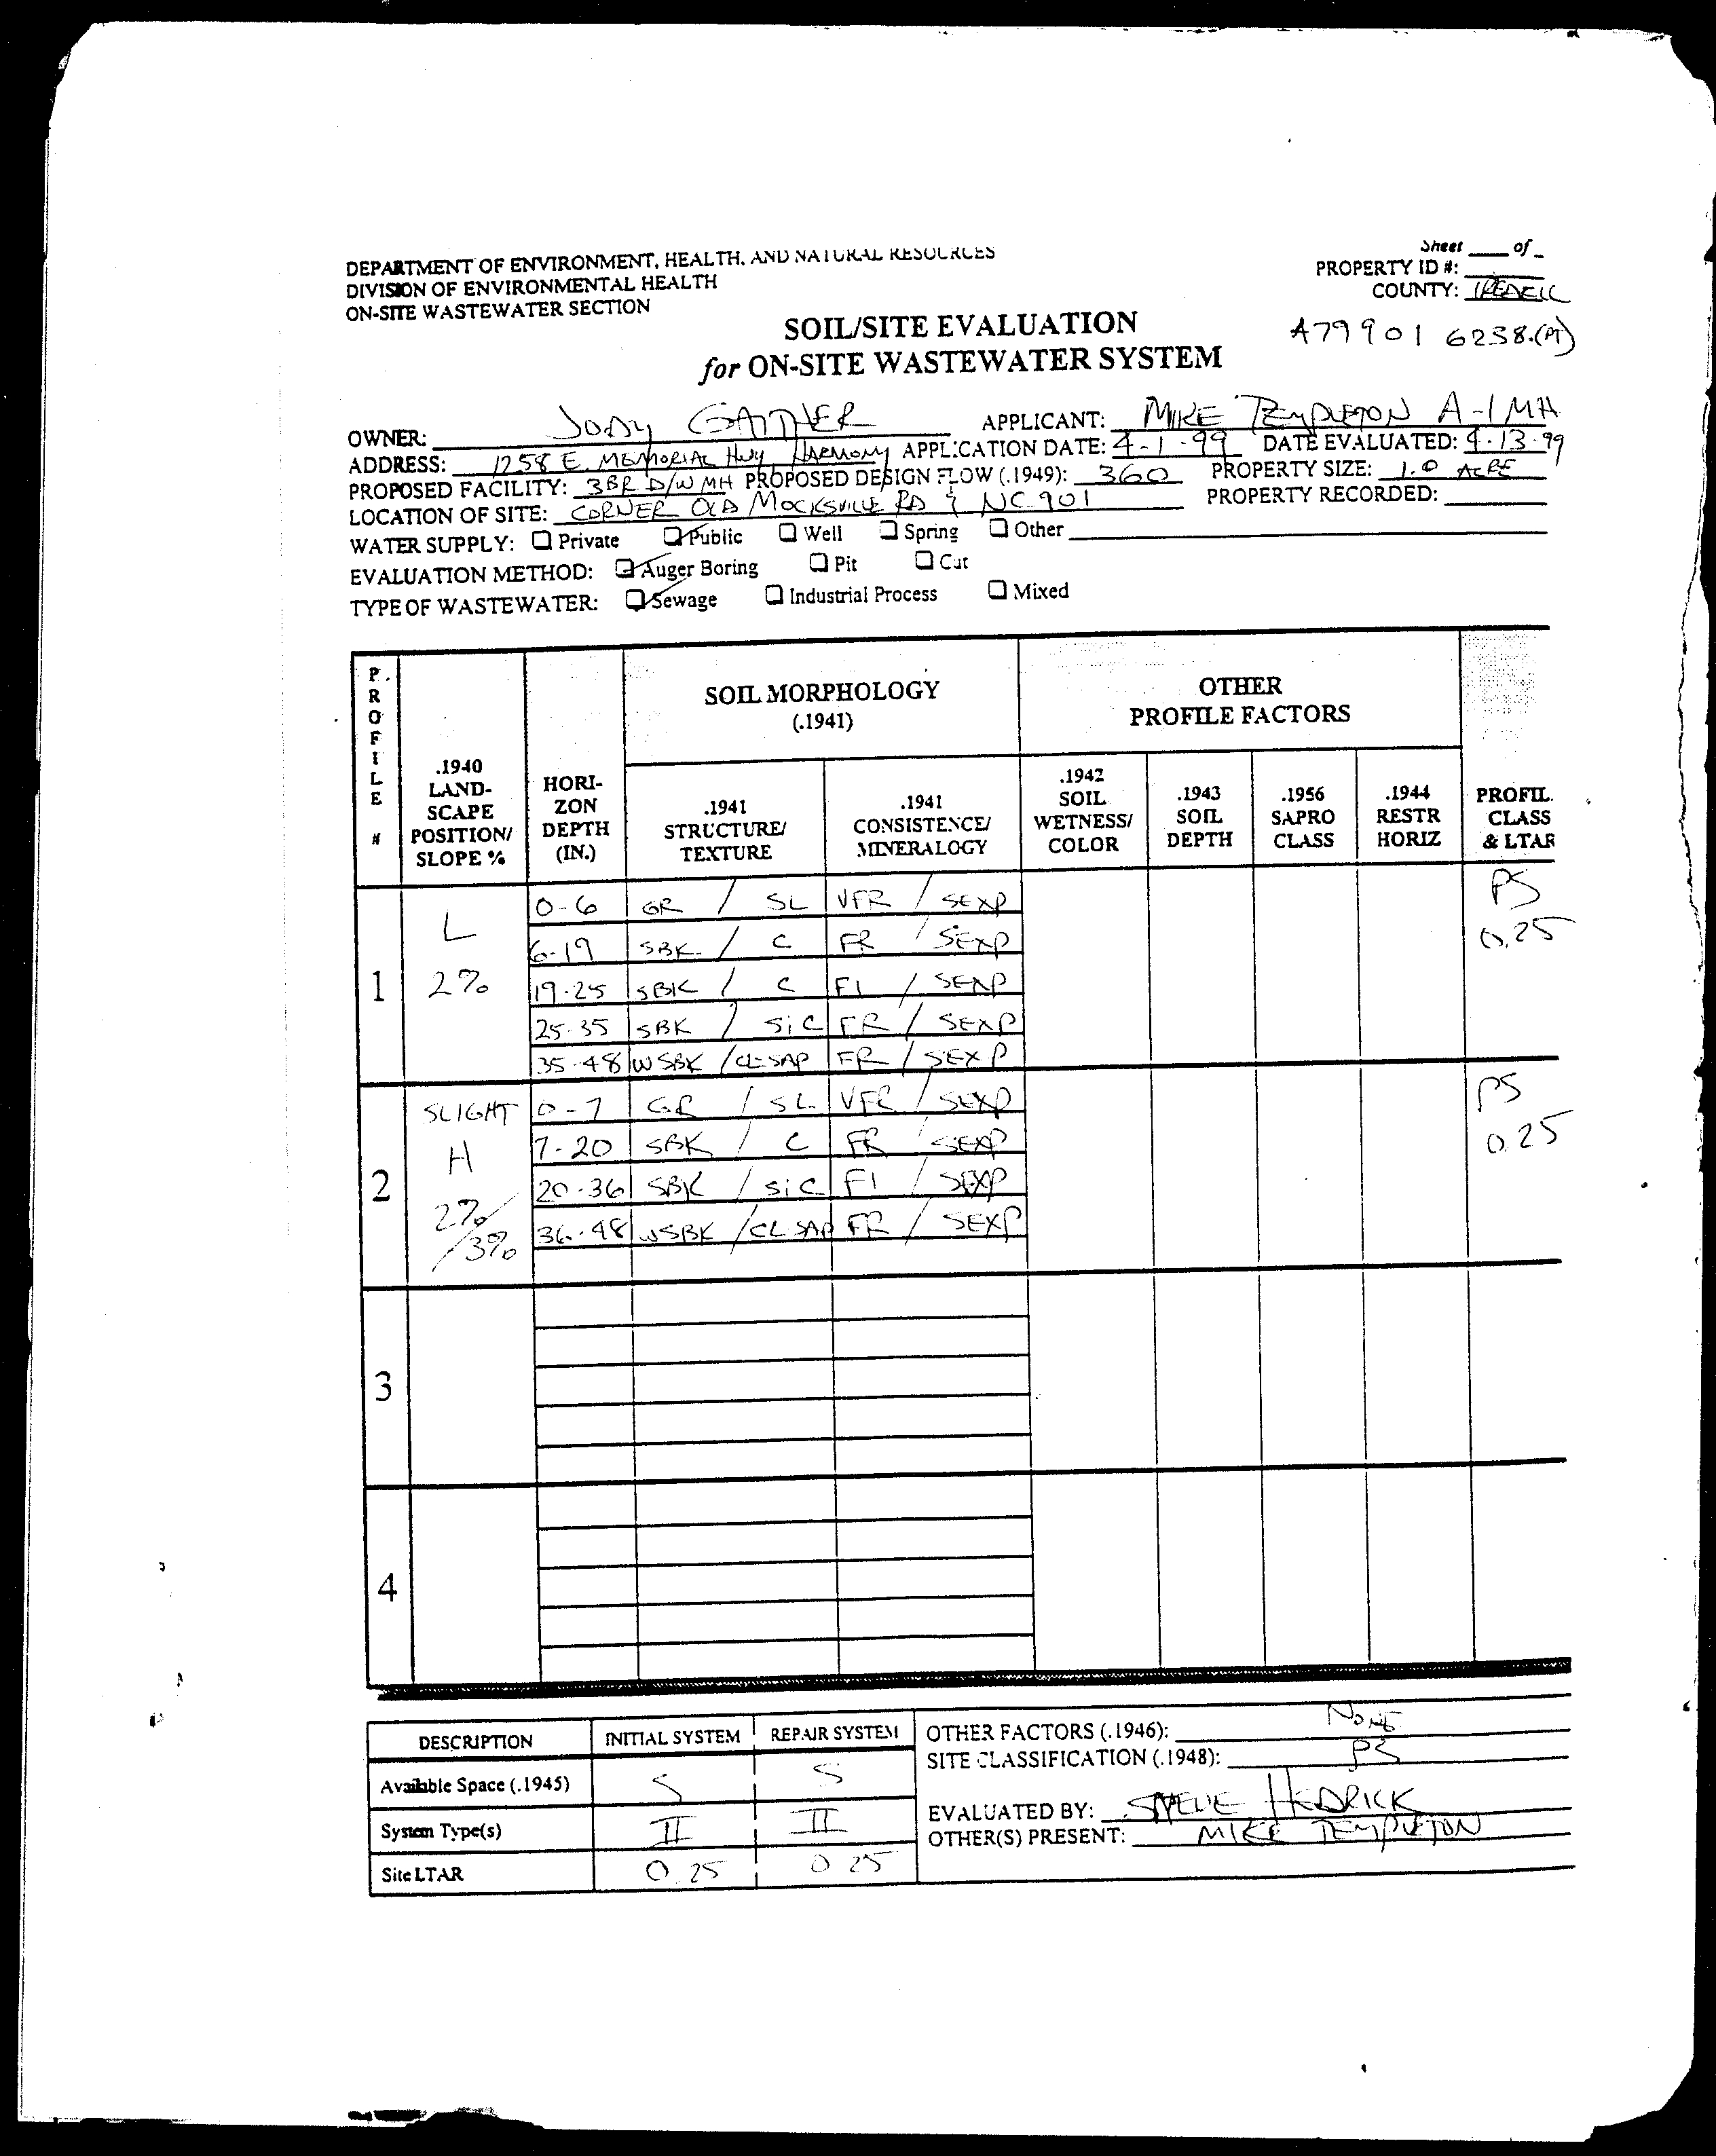 Sheet ____ of _
DEPARTMENT OF ENVIRONMENT, HEALTH, AND NATURAL RESOURCES
PROPERTY ID #:
DIVISION OF ENVIRONMENTAL HEALTH
COUNTY: IREDELL
ON-SITE WASTEWATER SECTION
SOIL/SITE EVALUATION
for ON-SITE WASTEWATER SYSTEM
A799016238.(PT)
OWNER: JODY GAITHER APPLICANT: MIKE TEMPLETON A-1 MH
ADDRESS: 1258 E. MEMORIAL HWY HARMONY APPLICATION DATE: 4-1-99 DATE EVALUATED: 4-13-99
PROPOSED FACILITY: 3BR D/W MH PROPOSED DESIGN FLOW (.1949): 360 PROPERTY SIZE: 1.0 ACRE
LOCATION OF SITE: CORNER OLD MOCKSVILLE RD & NC 901 PROPERTY RECORDED:
WATER SUPPLY: Private Public Well Spring Other
EVALUATION METHOD: Auger Boring Pit Cut
TYPE OF WASTEWATER: Sewage Industrial Process Mixed
PROFILE #
.1940 LAND-SCAPE POSITION/ SLOPE %
HORI-ZON DEPTH (IN.)
SOIL MORPHOLOGY (.1941)
.1941 STRUCTURE/ TEXTURE
.1941 CONSISTENCE/ MINERALOGY
OTHER PROFILE FACTORS
.1942 SOIL WETNESS/ COLOR
.1943 SOIL DEPTH
.1956 SAPRO CLASS
.1944 RESTR HORIZ
PROFIL. CLASS & LTAR
1 L 2%
0-6 GR / SL VFR / SEXP
6-19 SBK / C FR / SEXP
19-25 SBK / C FI / SEXP
25-35 SBK / SiC FR / SEXP
35-48 WSBK / CL SAP FR / SEXP
PS 0.25
2 SLIGHT H 2%/3%
0-7 GR / SL VFR / SEXP
7-20 SBK / C FR / SEXP
20-36 SBK / SiC FI / SEXP
36-48 WSBK / CL SAP FR / SEXP
PS 0.25
3
4
DESCRIPTION INITIAL SYSTEM REPAIR SYSTEM
Available Space (.1945) S S
System Type(s) II II
Site LTAR 0.25 0.25
OTHER FACTORS (.1946): NONE
SITE CLASSIFICATION (.1948): PS
EVALUATED BY: STEVE HEDRICK
OTHER(S) PRESENT: MIKE TEMPLETON